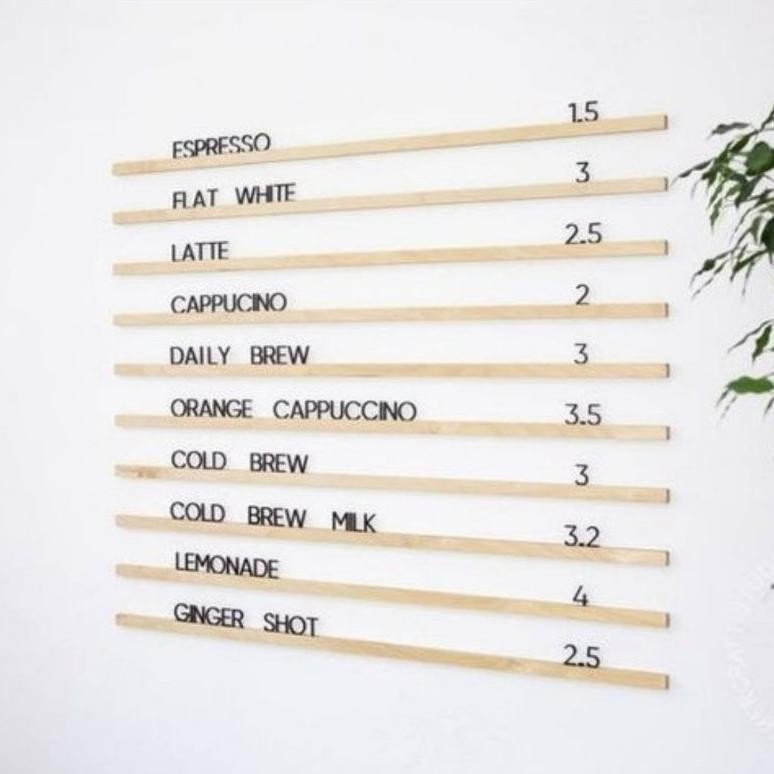 ESPRESSO 1.5
FLAT WHITE 3
LATTE 2.5
CAPPUCINO 2
DAILY BREW 3
ORANGE CAPPUCCINO 3.5
COLD BREW 3
COLD BREW MILK 3.2
LEMONADE 4
GINGER SHOT 2.5